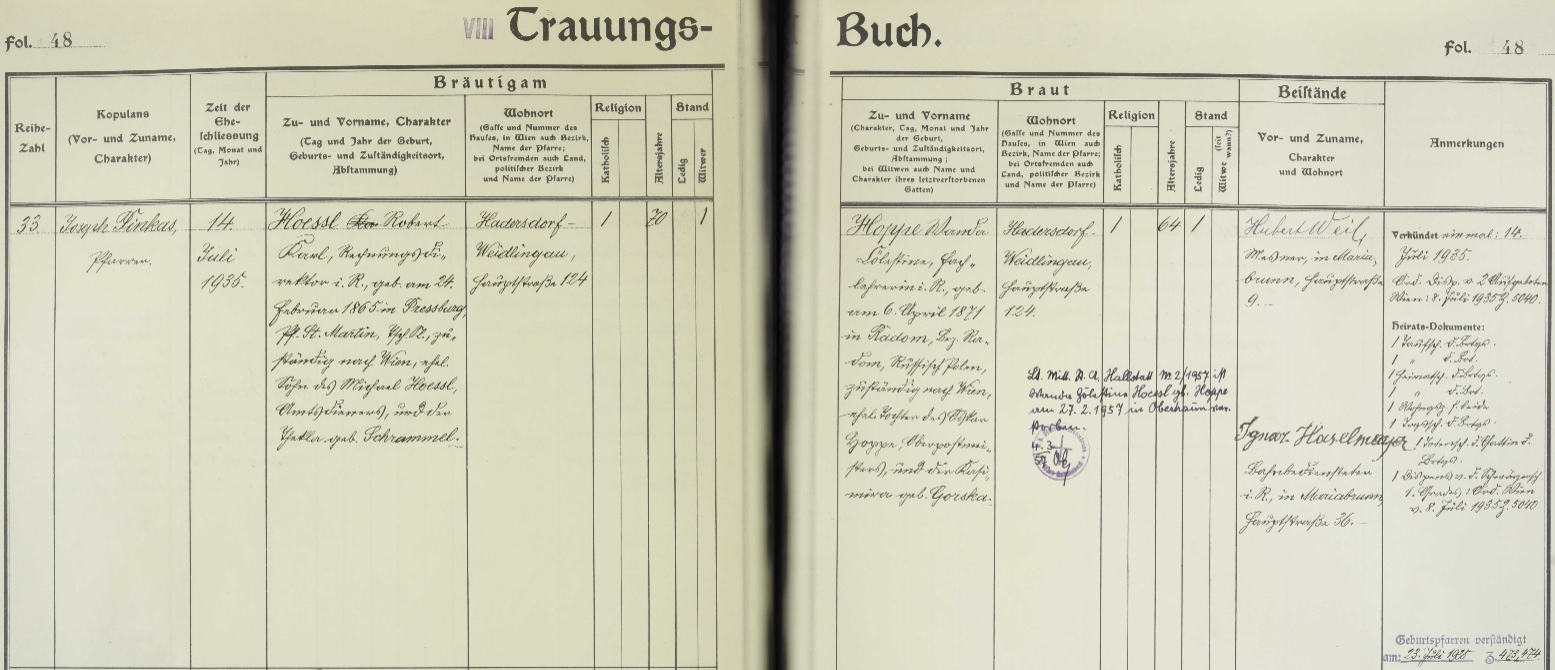 Fol. 48
VIII Trauungs-
Reihe-
Zahl
Kopulans
(Vor- und Zuname,
Charakter)
Zeit der
Ehe-
schließung
(Tag, Monat und
Jahr)
Bräutigam
Zu- und Vorname, Charakter
(Tag und Jahr der Geburt,
Geburts- und Zuständigkeitsort,
Abstammung)
Wohnort
(Gasse und Nummer des
Hauses, in Wien auch Bezirk,
Name der Pfarre;
bei Ortsfremden auch Land,
politischer Bezirk
und Name der Pfarre)
Religion
Katholisch
Altersjahre
Stand
Ledig
Witwer
33.
Joseph Finkas,
Pfarrer.
14.
Juli
1935.
Hoessl Robert
Karl, Rechnungsdi-
rektor i. R., geb. am 24.
Februar 1865 in Pressburg,
Pf. St. Martin, Tsch. R., zu-
ständig nach Wien, ehel.
Sohn des Michael Hoessl,
Amtsdieners, und der
Thekla geb. Schrammel.
Hadersdorf-
Weidlingau,
Hauptstraße 124
1
70
1
Buch.
Fol. 48
Braut
Zu- und Vorname
(Charakter, Tag, Monat und Jahr
der Geburt,
Geburts- und Zuständigkeitsort,
Abstammung;
bei Witwen auch Name und
Charakter ihres letztverstorbenen
Gatten)
Wohnort
(Gasse und Nummer des
Hauses, in Wien auch
Bezirk, Name der Pfarre;
bei Ortsfremden auch
Land, politischer Bezirk
und Name der Pfarre)
Religion
Katholisch
Altersjahre
Stand
Ledig
Witwe (seit wann?)
Beistände
Vor- und Zuname,
Charakter
und Wohnort
Anmerkungen
Hoppe Wanda
Cölestine, Fach-
lehrerin i. R., geb.
am 6. April 1871
in Radom, Bez. Ra-
dom, Russisch Polen,
zuständig nach Wien,
ehel. Tochter des Oskar
Hoppe, Oberpostmei-
sters, und der Kasi-
mira geb. Gorska.
Hadersdorf-
Weidlingau,
Hauptstraße
124.
Lt. Mitt. St. A. Hallstatt Nr. 2/1957 ist
Wanda Zölestine Hoessl gb. Hoppe
am 27. 2. 1957 in Obertraun ver-
storben.
1
64
1
Hubert Weil,
Mesner, in Maria-
brunn, Hauptstraße
9.
Ignaz Haselmayer
Bahnbediensteter
i. R., in Mariabrunn,
Hauptstraße 36.
Verkündet einmal: 14.
Juli 1935.
Ord. Disp. v. 2 Aufgeboten
Wien: 8. Juli 1935 Z. 5040.
Heirats-Dokumente:
1 Taufsch. d. Brtgs.
1 " d. Brt.
1 Heimatsch. d. Brtgs.
1 " d. Brt.
1 f. beide
1 Trausch. d. Brtgs.
1 Totensch. d. Gattin d.
Brtgs.
1 Dispens v. d. Schwägersch.
1. Grades: Ord. Wien
v. 8. Juli 1935 Z. 5040
Geburtspfarren verständigt
am: 23. Juli 1935 Z. 473, 474